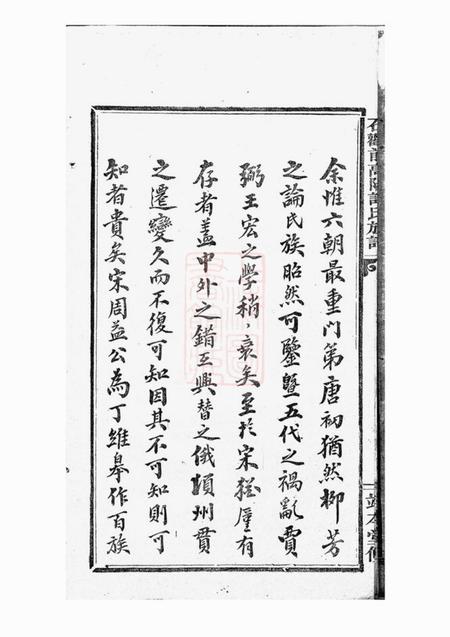 余惟六朝最重門第唐初猶然柳芳
之論氏族昭然可鑒暨五代之禍亂賈
弼王宏之學稍〻衰矣至於宋猶廑有
存者盖中外之錯互興替之俄頃州貫
之遷變久而不復可知因其不可知則可
知者貴矣宋周益公為丁維皋作百族